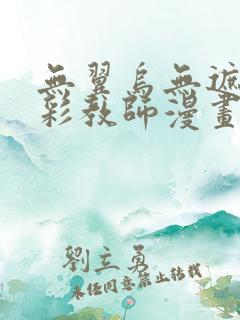 無翼鳥無遮
彩教師漫畫
劉立勇
未经同意禁止转载